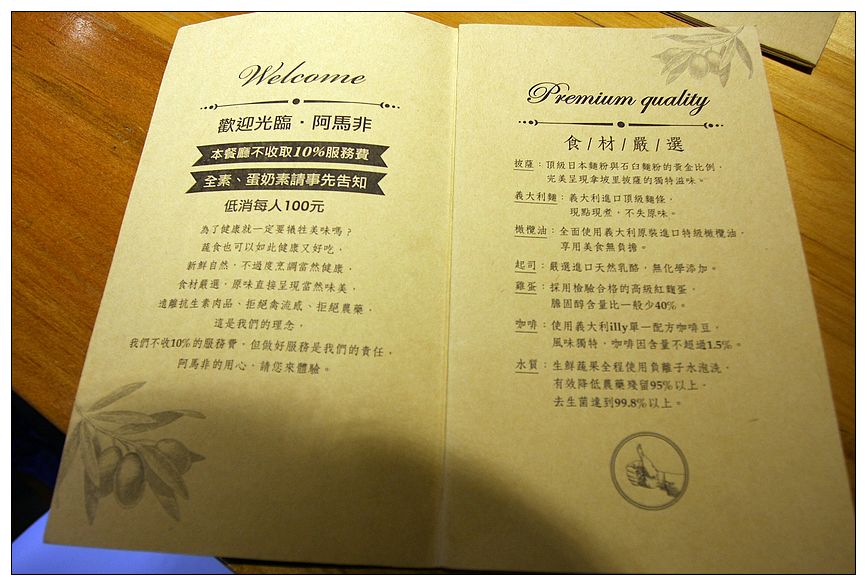 Welcome
歡迎光臨・阿馬非
本餐廳不收取10%服務費
全素、蛋奶素請事先告知
低消每人100元
為了健康就一定要犧牲美味嗎?
蔬食也可以如此健康又好吃,
新鮮自然,不過度烹調當然健康,
食材嚴選,原味直接呈現當然味美,
遠離抗生素肉品、拒絕禽流感、拒絕農藥,
這是我們的理念,
我們不收10%的服務費,但做好服務是我們的責任,
阿馬非的用心,請您來體驗。
Premium quality
食/材/嚴/選
披薩:頂級日本麵粉與石臼麵粉的黃金比例,
完美呈現拿坡里披薩的獨特滋味。
義大利麵:義大利進口頂級麵條,
現點現煮,不失原味。
橄欖油:全面使用義大利原裝進口特級橄欖油,
享用美食無負擔。
起司:嚴選進口天然乳酪,無化學添加。
雞蛋:採用檢驗合格的高級紅麴蛋,
膽固醇含量比一般少40%。
咖啡:使用義大利illy單一配方咖啡豆,
風味獨特,咖啡因含量不超過1.5%。
水質:生鮮蔬果全程使用負離子水泡洗,
有效降低農藥殘留95%以上,
去生菌達到99.8%以上。